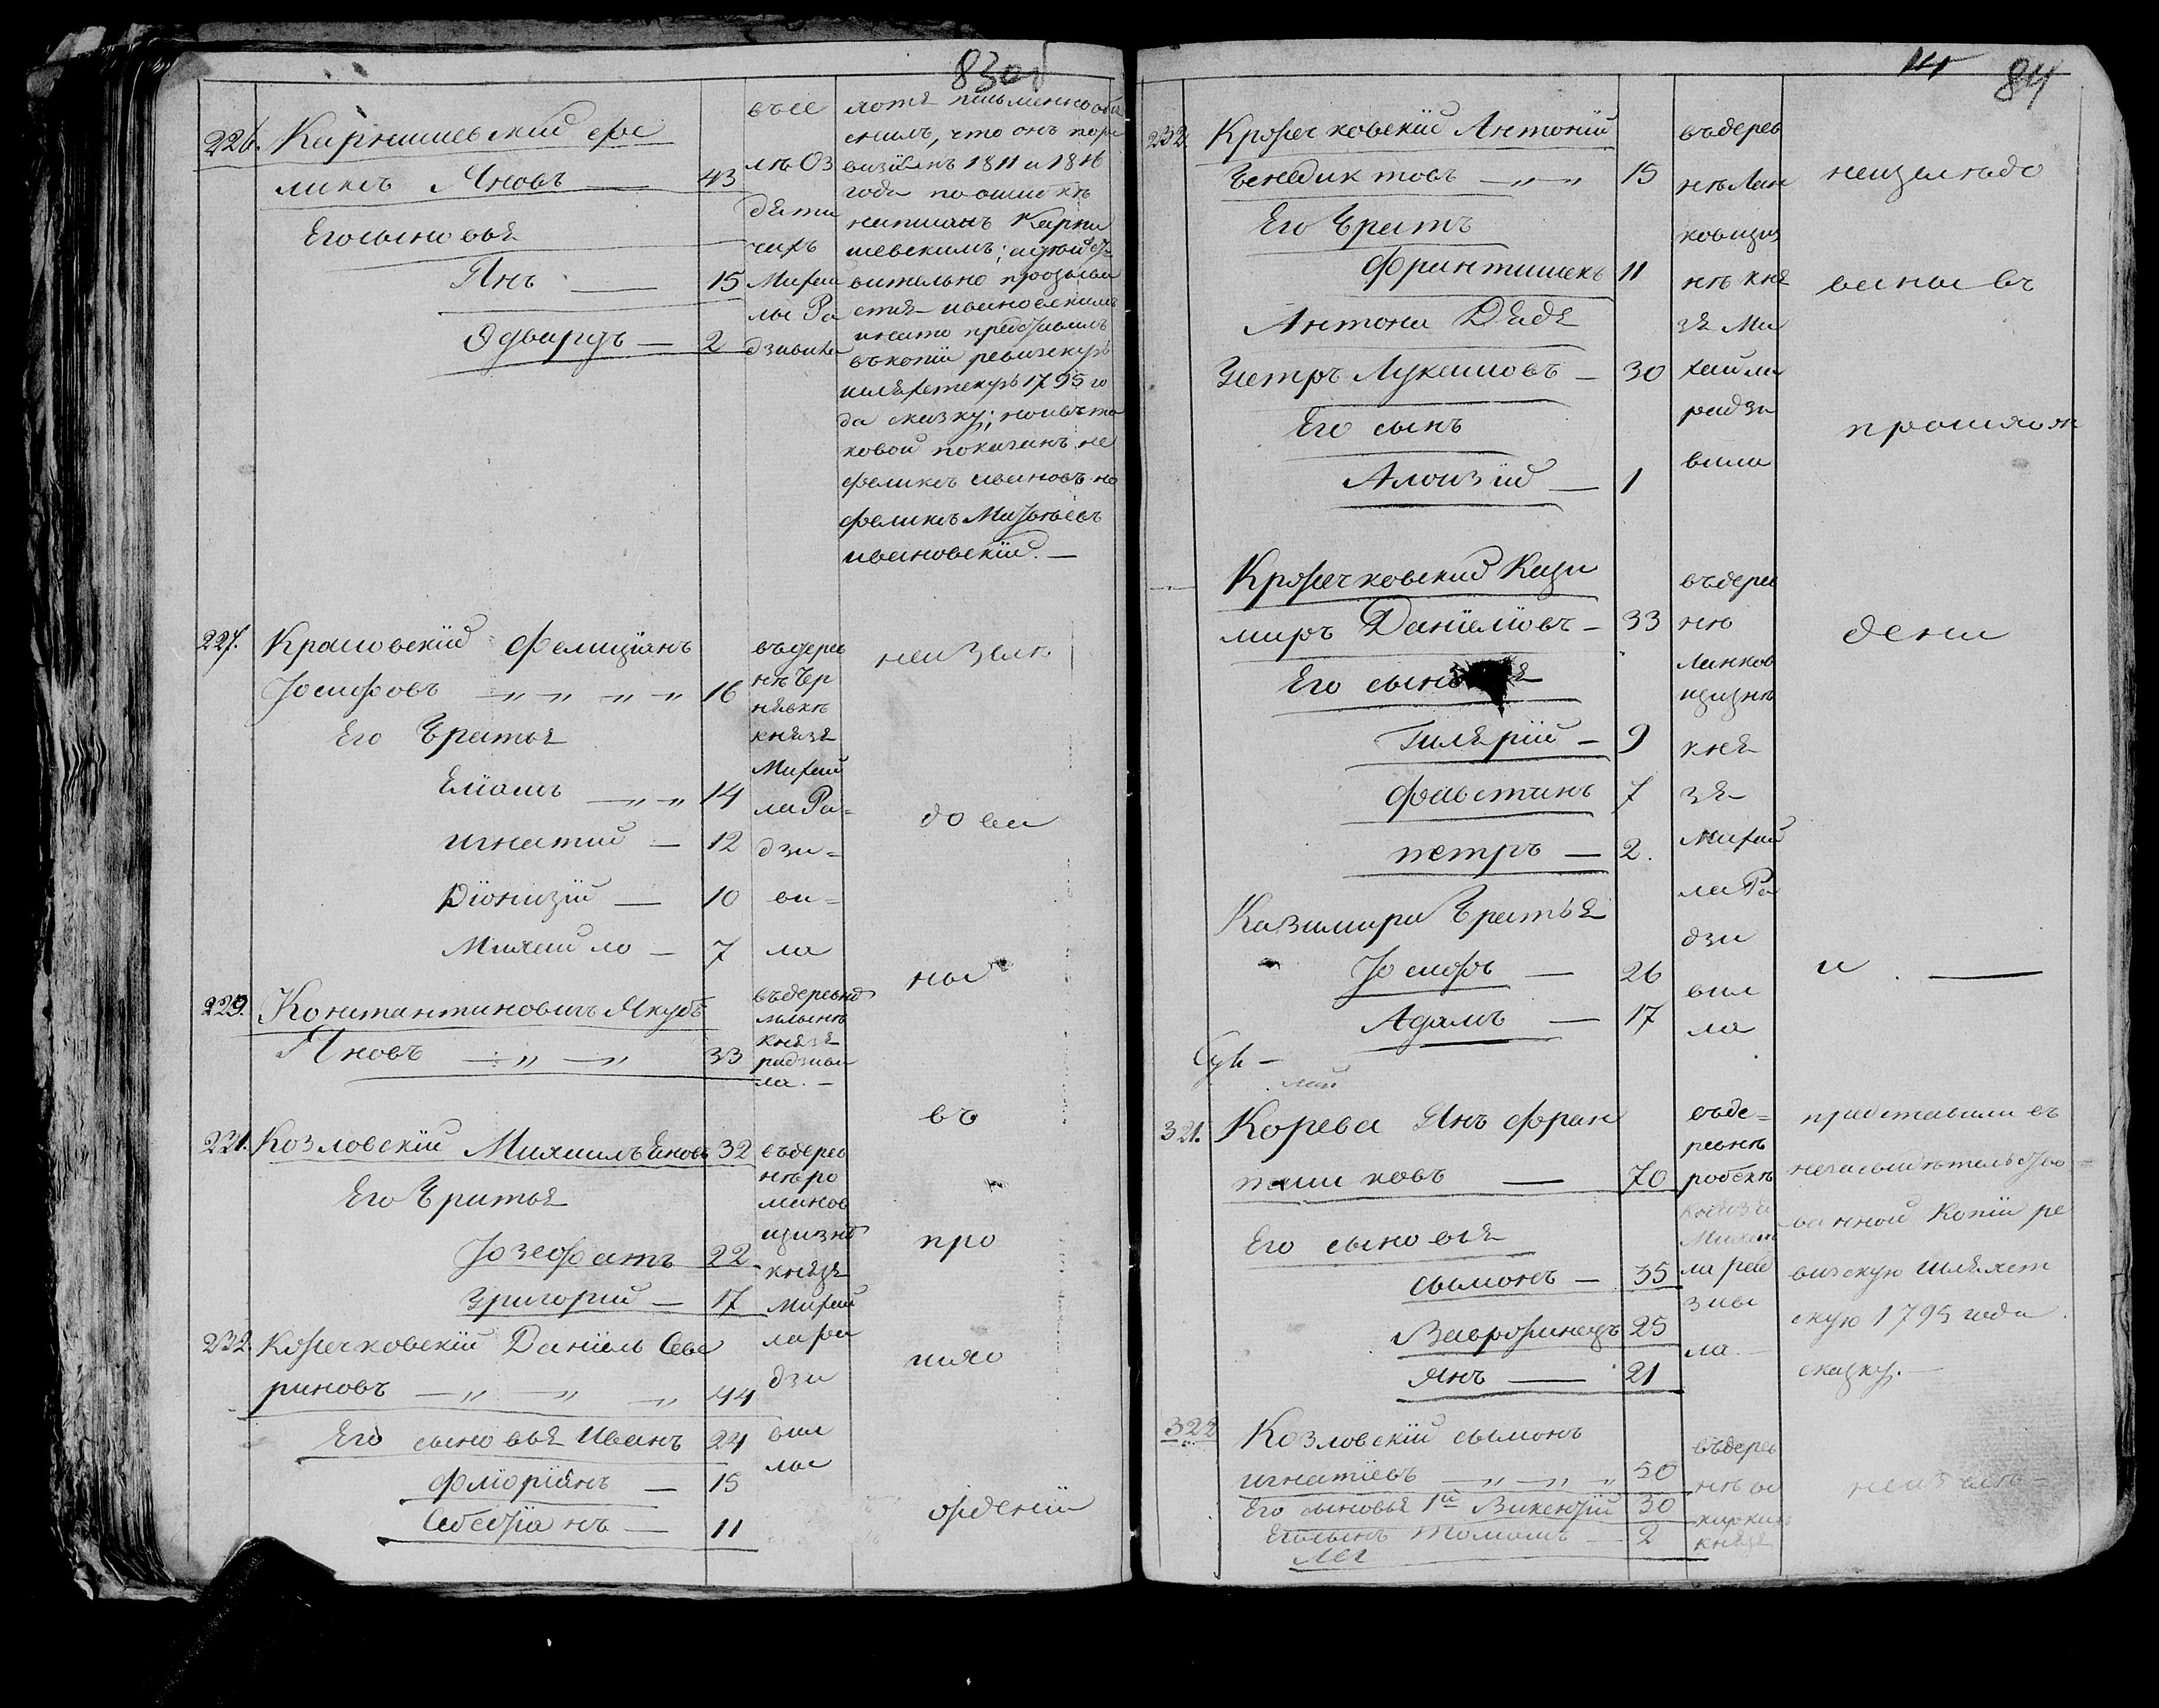 83об
226. Карнишевскій Фе
ликсъ Яновъ — 43
Его сыновья
Янъ — 15
Эдвардъ — 2
въ се
лѣ Оз
дяти
чахъ
Михаи
лы Ра
дзивила
хотя письменно объя
снилъ, что онъ по ре
визіямъ 1811 и 1816
года по ошибкѣ
написанъ Карни
шевскимъ; а дѣйст
вительно прозыва
ется Ивановскимъ
и на то представилъ
въ копіи ревизскую
шляхетскую 1795 го
да сказку; но въ та
ковой показанъ не
Феликсъ Ивановъ но
Феликсъ Матѣевъ
Ивановскій. —
227. Красовскій Фелиціанъ
Іосифовъ — 16
Его братья
Еліашъ — 14
Игнатій — 12
Діонизій — 10
Михайло — 7
въ дерев
нѣ Чер
нявкѣ
князя
Михай
ла Ра-
дзи-
ви-
ла
неизслѣ
дова
ны
въ
про
шло
229. Константиновичъ Якубъ
Яновъ — 33
въ деревнѣ
князя
радзиви
ла. —
231. Козловскій Михаилъ Яновъ 32
Его братья
Іозефатъ 22
Григорій — 17
въ дерев
нѣ ро
манов
щизнѣ
князя
Михай
ла ра
дзи
вил
лы
232. Кречковскій Даніель Севе
риновъ — 44
Его сыновья Иванъ 24
Флоріянъ — 15
Себестіанъ — 11
84
232. Кречковскій Антоній
Бенедиктовъ — 15
Его братъ
Франтишекъ 11
Антона Дядя
Петръ Лукашовъ — 30
Его сынъ
Алоизій — 1
въ дерев
нѣ Лан
ковщиз
нѣ кня
зя Ми
хайла
радзи
вила
неизслѣдо
ваны въ
прошлом
Кречковскій Кази
миръ Даніеліовъ — 33
Его сыновья
Гилярій — 9
Фавстинъ 7
петръ — 2.
Казимира братья
Іосифъ — 26
Адамъ — 17
въ дерев
нѣ
Ланков
щизнѣ
кня
зя
Михай
ла Ра
дзи
вил
ла
дени
и. —
321. Корева Янъ Фран
тишковъ — 70
Его сыновья
сымонъ — 35
Вавринецъ 25
Янъ — 21
въ де-
ревнѣ
князя
Михаи
ла рад
зиви
ла. —
представили въ
незасвидѣтельство-
ванной копіи ре
визскую шляхет
скую 1795 года
сказку. —
322 Козловскій сымонъ
игнатіевъ — 50
Его сыновья 1й Викентій 30
Его сынъ Томашъ — 2
въ дерев
князя
неизслѣ-